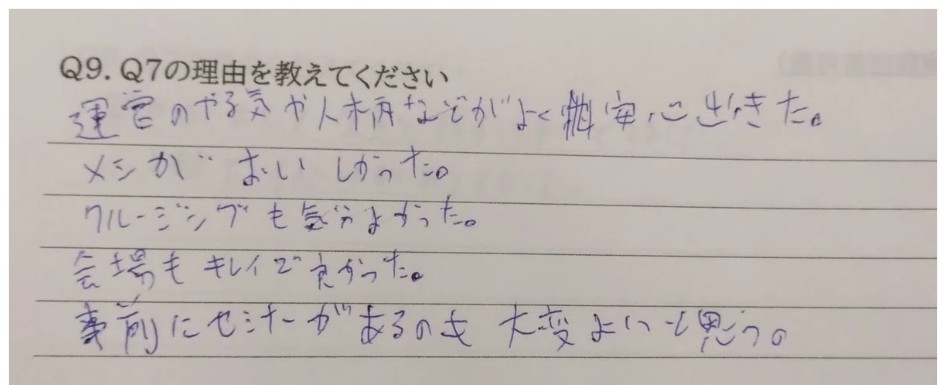 Q9. Q7の理由を教えてください
運営のやる気や人柄などがよく安心出きた。
メシが おいしかった。
クルージングも気分よかった。
会場もキレイで良かった。
事前にセミナーがあるのも 大変よいと思う。